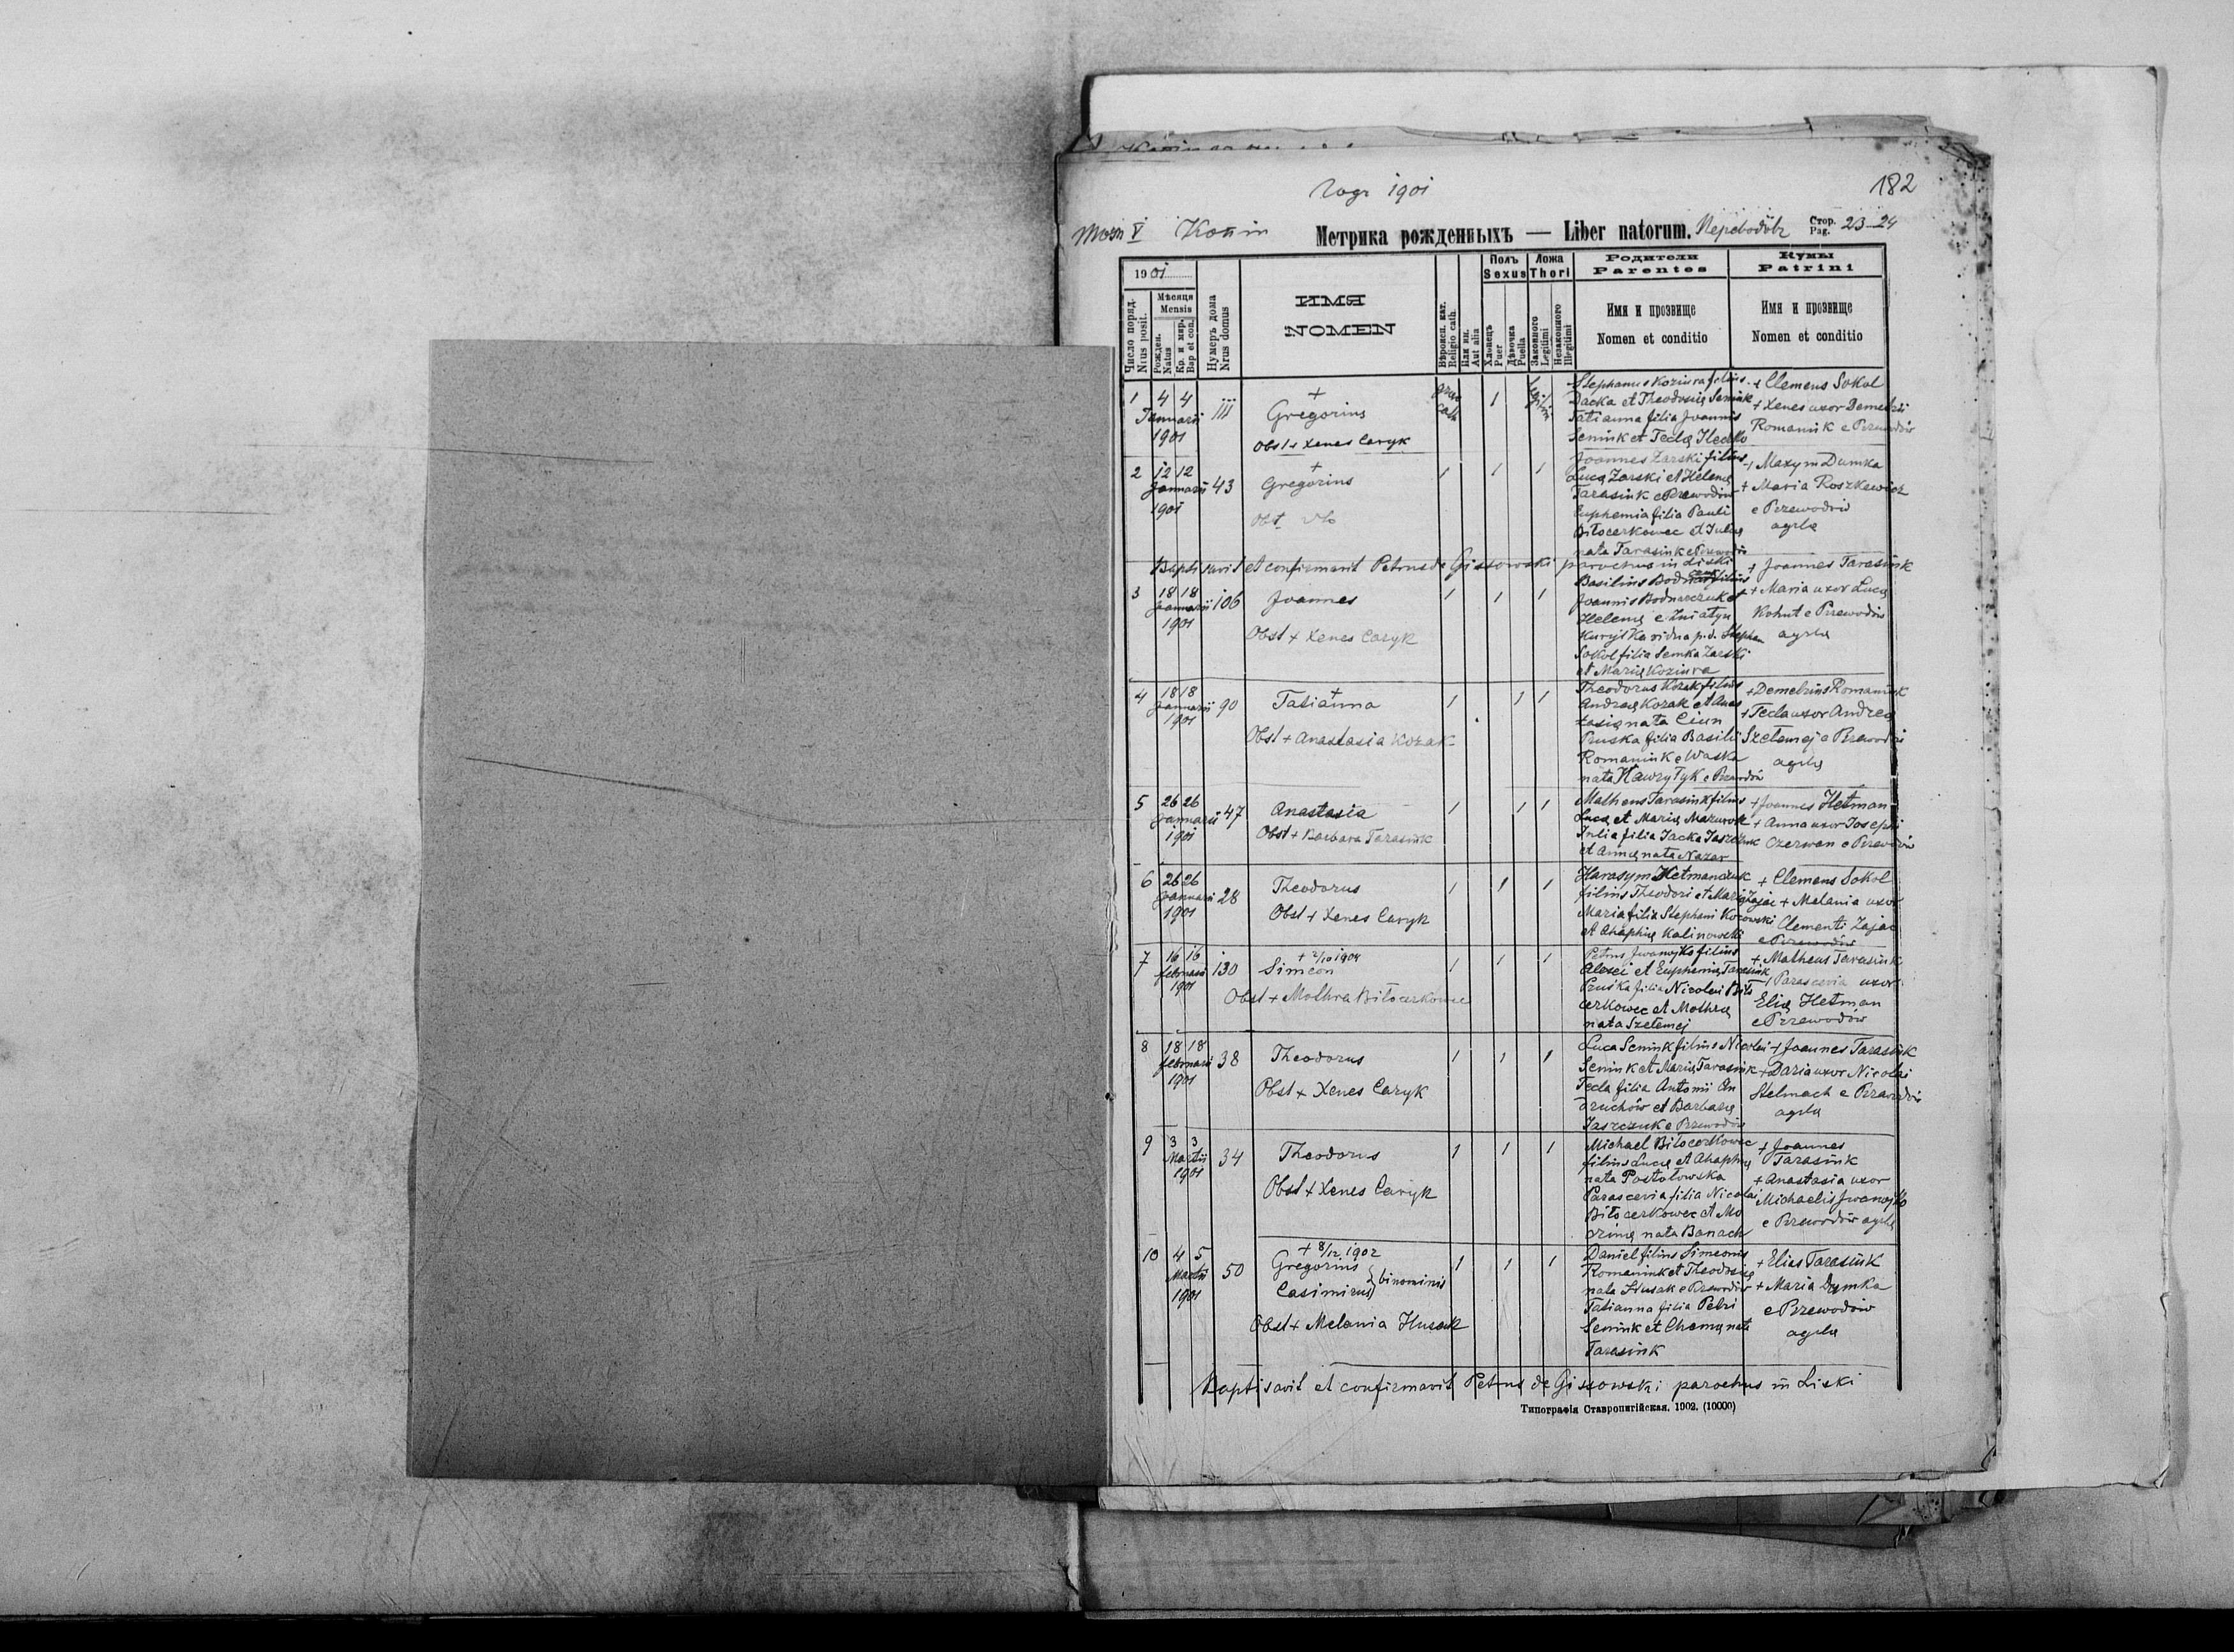 182
1901
Том V Копія Метрика рожденныхъ — Liber natorum. Переводôвъ Стор. Pag. 23-24
1901
Число поряд. Nrus posit.
Мѣсяця Mensis
Рожден. Natus
Кр. и мир. Bap et con.
Нумеръ дома Nrus domus
ИМЯ
NOMEN
Вѣроисп. кат. Religio cath.
Или ин. Aut alia
Полъ Sexus
Хлопець Puer
Дѣвочка Puella
Ложа Thori
Законного Legitimi
Незаконного Illegitimi
Родители
Parentes
Имя и прозвище
Nomen et conditio
Кумы
Patrini
Имя и прозвище
Nomen et conditio
1 4 4 Januarii 1901 111
+
Gregorius
Obst + Xenes Caryk
graec cath 1
Stephanus Koziura filius
Dacka et Theodosię Seniuk
Tatianna filia Joannis
Seniuk et Teclę Hecko
+ Clemens Sokol
+ Xenes uxor Demetrii
Romaniuk e Przewodów
2 12 12 Januarii 1901 43
+
Gregorius
Obst
1 1 1
Joannes Zarski filius
Lucę Zarski et Helenę
Tarasiuk e Przewodów
Euphemia filia Pauli
Biłocerkowec et Julię
nata Tarasiuk e Przewodów
+ Maxym Dumka
+ Maria Roszkewicz
e Przewodów
agrlę
Baptisavit et confirmavit Petrus de Gissowski parochus in Liski
3 18 18 Januarii 1901 106
Joannes
Obst + Xenes Caryk
1 1 1
Basilius Bodnarczuk filius
Joannis Bodnarczuk et
Helenę e Żniatyn
vidua p.d. Stephan
Sokol filia Semka Zarski
et Marię Koziura
+ Joannes Tarasiuk
+ Maria uxor Lucę
Kohut e Przewodów
agrlę
4 18 18 Januarii 1901 90
+
Tatianna
Obst + Anastasia Kozak
1 1 1
Theodorus Kozak filius
Andreę Kozak et Anas
tasię nata Ciun
Pruska filia Basilii
Romaniuk e Waśka
nata Hawryłyk e Przewodów
+ Demetrius Romaniuk
+ Tecla uxor Andreę
Szełemej e Przewodów
agrlę
5 26 26 Januarii 1901 47
Anastasia
Obst + Barbara Tarasiuk
1 1 1
Matheus Tarasiuk filius
Lucę et Marię Mazurok
Julia filia Jacka Jaszczuk
et Annę nata Nazar
+ Joannes Hetman
+ Anna uxor Josephi
Czerwan e Przewodów
6 26 26 Januarii 1901 28
Theodorus
Obst + Xenes Caryk
1 1 1
Harasym Hetmanczuk
filius Theodori et Marię Zajac
Maria filia Stephani Kozowski
et Ahaphię Kalinowski
+ Clemens Sokol
+ Melania uxor
Clementi Zajac
e Przewodów
7 16 16 februarii 1901 130
+ 2/10 1904
Simeon
Obst + Mothra Biłocerkowec
1 1 1
Petrus Jwanojko filius
Alexei et Euphemię Tarasiuk
Pruśka filia Nicolai Biło
cerkowec et Mothrę
nata Szełemej
+ Matheus Tarasiuk
+ Parascevia uxor
Elię Hetman
e Przewodów
8 18 18 februarii 1901 38
Theodorus
Obst + Xenes Caryk
1 1 1
Luca Seniuk filius Nicolai
Seniuk et Marię Tarasiuk
Tecla filia Antonii An
druchów et Barbarę
Jaszczuk e Przewodów
+ Joannes Tarasiuk
+ Daria uxor Nicolai
Stelmach e Przewodów
agrlę
9 3 3 Martii 1901 34
Theodorus
Obst + Xenes Caryk
1 1 1
Michael Biłocerkowec
filius Lucę et Ahaphię
nata Postołowska
Parascevia filia Nicolai
Biłocerkowec et Ma
nata Banach
+ Joannes
Tarasiuk
+ Anastasia uxor
Michaelis Jwanojko
e Przewodów agrlę
10 4 5 Martii 1901 50
+ 8/12 1902
Gregorius
Casimirus } binominis
Obst + Melania Husak
1 1 1
Daniel filius Simeonis
Romaniuk et Theodosię
nata Husak e Przewodów
Tatianna filia Petri
Seniuk et Chemę nata
Tarasiuk
+ Elias Tarasiuk
+ Maria Dumka
e Przewodów
agrlę
Baptisavit et confirmavit Petrus de Gissowski parochus in Liski
Типографія Ставропигійская. 1902. (10000)